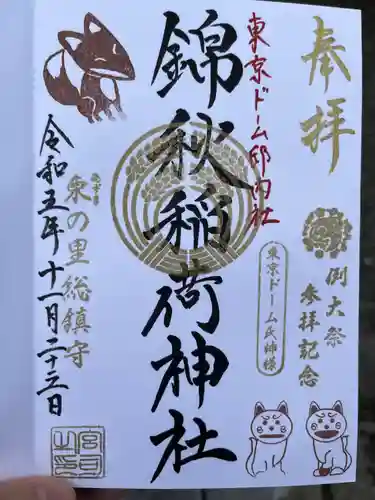 奉拝
例大祭
参拝記念
東京ドーム邸内社
東京ドーム氏神様
錦秋稲荷神社
総鎮守
令和五年十一月二十三日